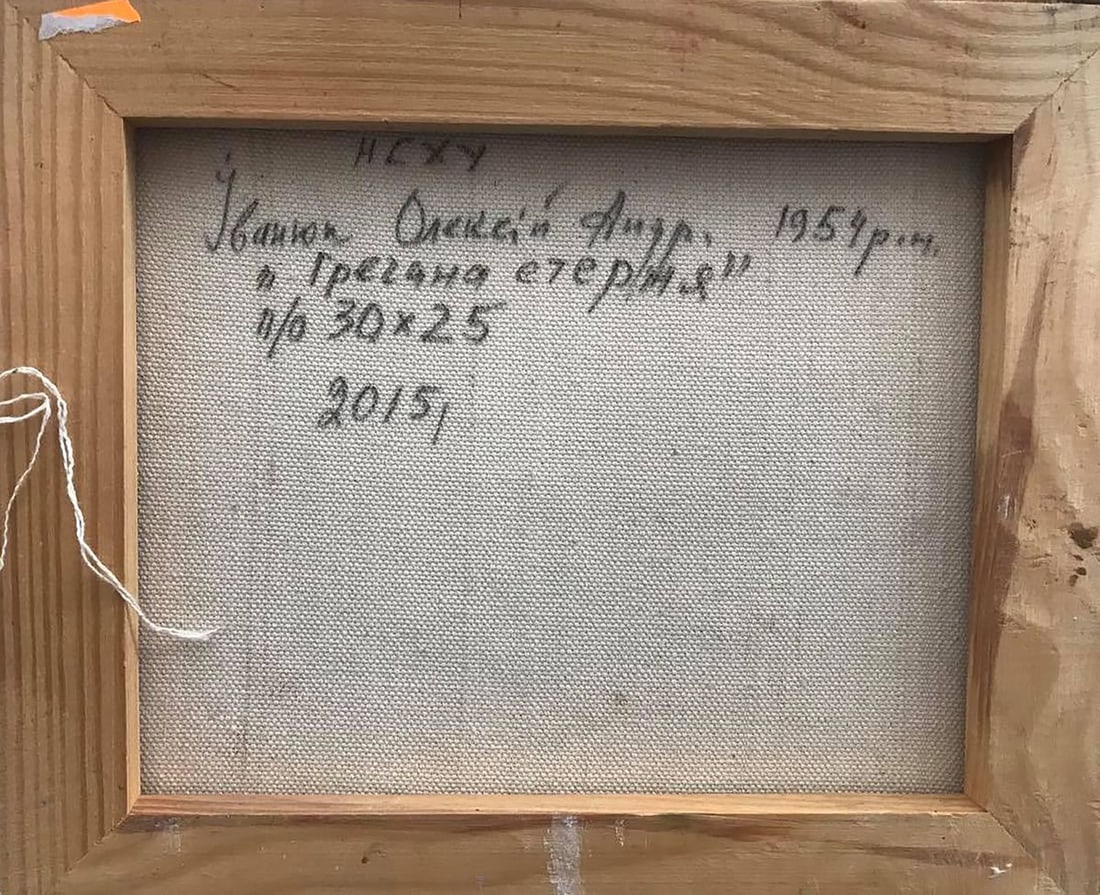 НСХУ
Іванюк Олексій Андр. 1954р.н.
„Гречана стерня"
п/о 30×25
2015,